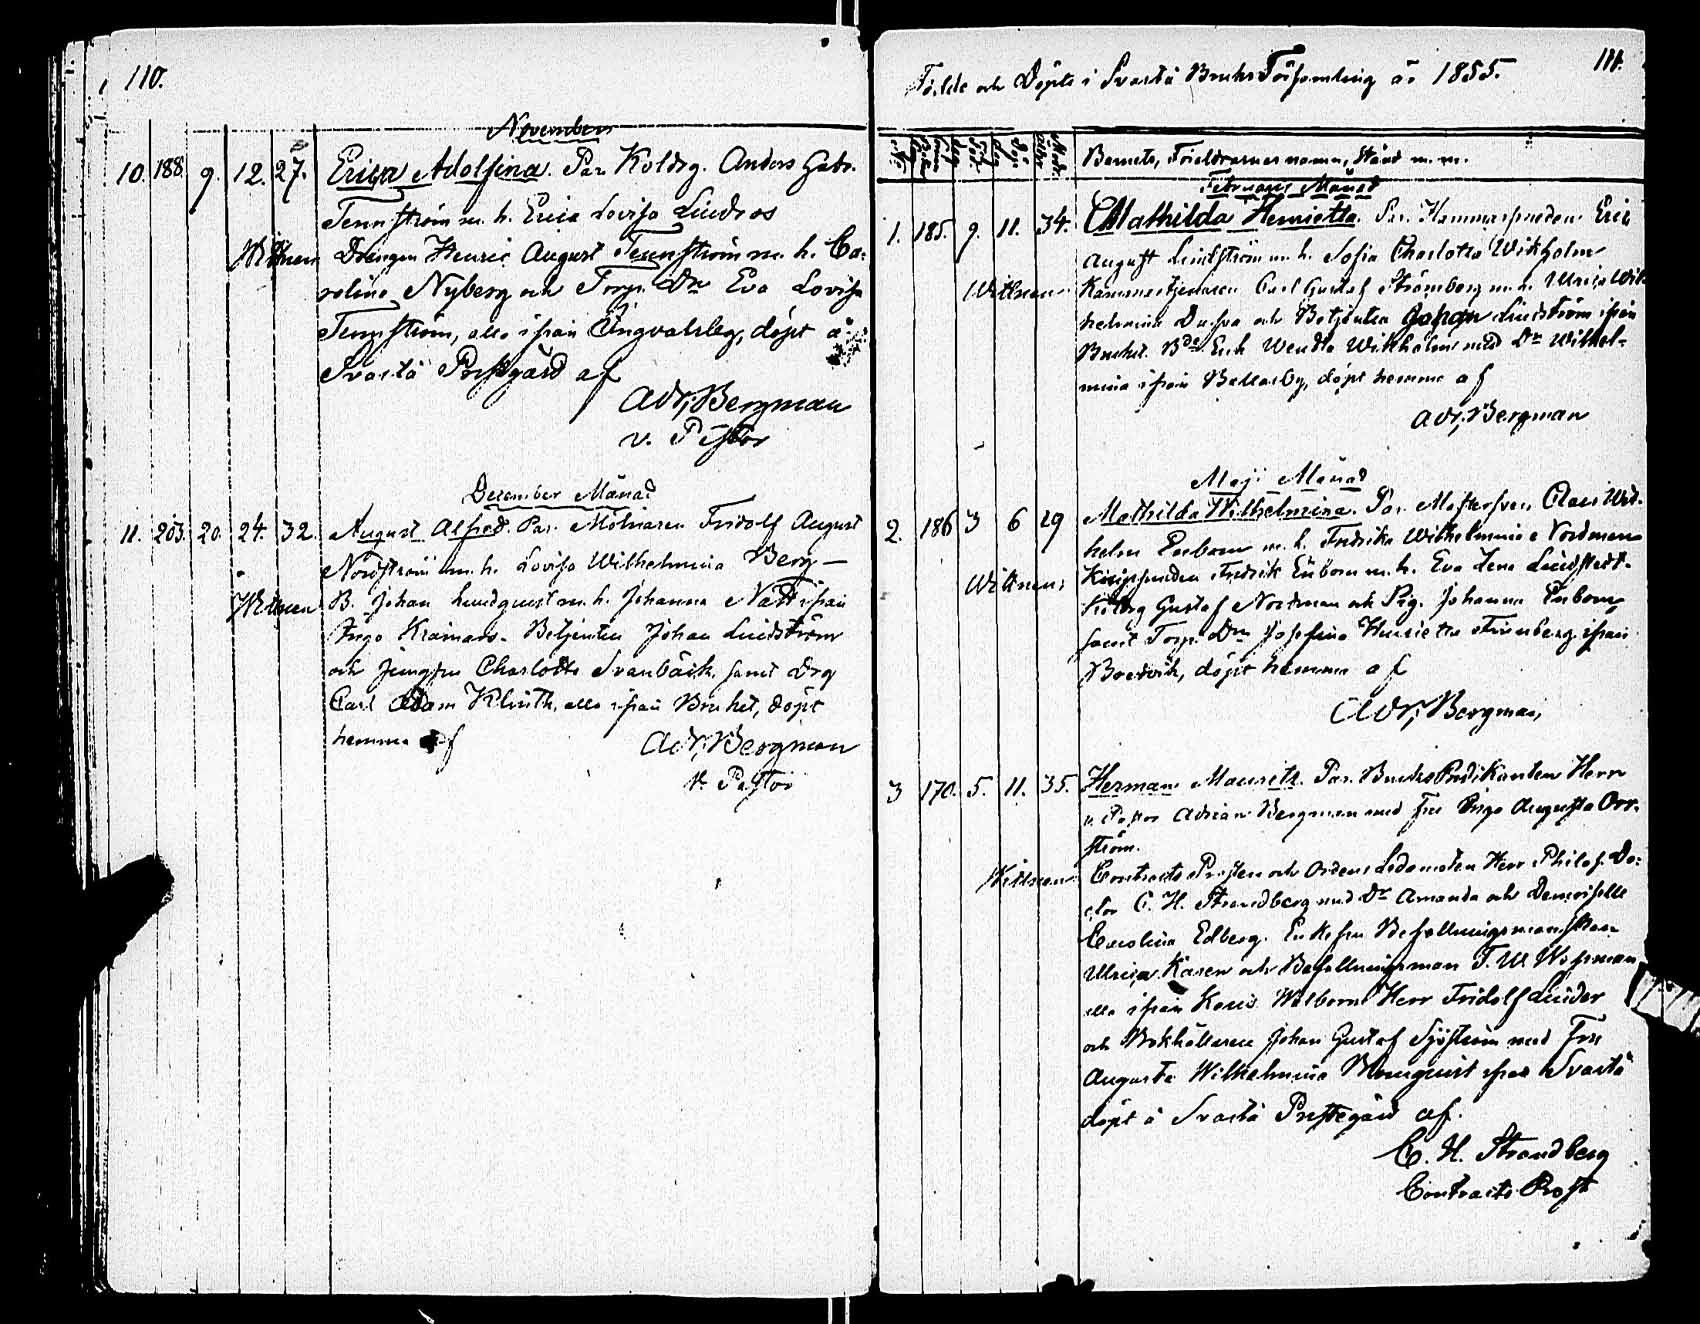 110.
November
10. 188. 9. 12. 27. Erica Adolfina. Par. Koldrg. Anders Gabr.
Tennström m. h. Erica Lovisa Lindros
Wittnen Drängen Henric August Tennström m. h. Ca-
rolina Nyberg och Torp. Dr Eva Lovisa
Tennström, alla ifrån Ängvalsby, döpt å
Svartå Prestgård af
Adr. Bergman
v. Pastor
December Månad
11. 203. 20. 24. 32. August Alfred. Par. Mölnaren Fridolf August
Nordström m. h. Lovisa Wilhelmina Berg—
Wittnen B. Johan Lundquist m. h. Johanna Nätt ifrån
Ingo Betjenten Johan Lindström
och Jungfru Charlotta Svanbäck, samt Drg
Carl Adam Klinth, alla ifrån Bruket, döpt
hemma af Adr. Bergman
v. Pastor
111.
Födde och Döpte i Svartå Bruks Församling år 1855.
Barnets, Föräldrarnes namn, Stånd m. m.
Februarii Månad
1. 185. 9. 11. 34. Mathilda Henrietta. Par. Hammarsmeden Eric
August Lindström m. h. Sofia Charlotta Wikholm
Wittnen Kammartjenaren Carl Gustaf Strömberg m. h. Ulrica Wil-
helmina och Betjenten Johan Lindström ifrån
Bruket. Bde Enk Wendla Wikholm med Dr Wilhel-
mina ifrån Ballarby, döpt hemma af
Adr. Bergman
Maji Månad
2. 186 3 6 29 Mathilda Wilhelmina. Par. Mästersven Claes Wil-
helm Enbom m. h. Fredrika Wilhelmina Nordman
Wittnen: Knippsmeden Fredrik Enbom m. h. Eva Lena Lindstedt.
Koldrg Gustaf Nordman och Pig. Johanna Enbom,
samt Torp. Dr Josefina Henrietta ifrån
Bredvik, döpt hemma af
Adr. Bergman,
3 170. 5. 11. 35. Herman Mauritz. Par. Bruks Predikanten Herr
v. Pastor Adrian Bergman med Fru Inga Augusta Orr-
ström.
Wittnen Contracts Prosten och Ordens Ledamoten Herr Philos. Do-
ctor C. H. Strandberg med Dr Amanda och Demoiselle
Carolina Edberg. Enkefru Befallningsmanskan
Ulrica Karen och Befallningsman T. W.
alla ifrån Karis Herr Fridolf Linder
och Bokhållaren Johan Gustaf Sjöström med Fru
Augusta Wilhelmina ifrån Svartå
döpt å Svartå Prestegård af.
C. H. Strandberg
Contracts Prost